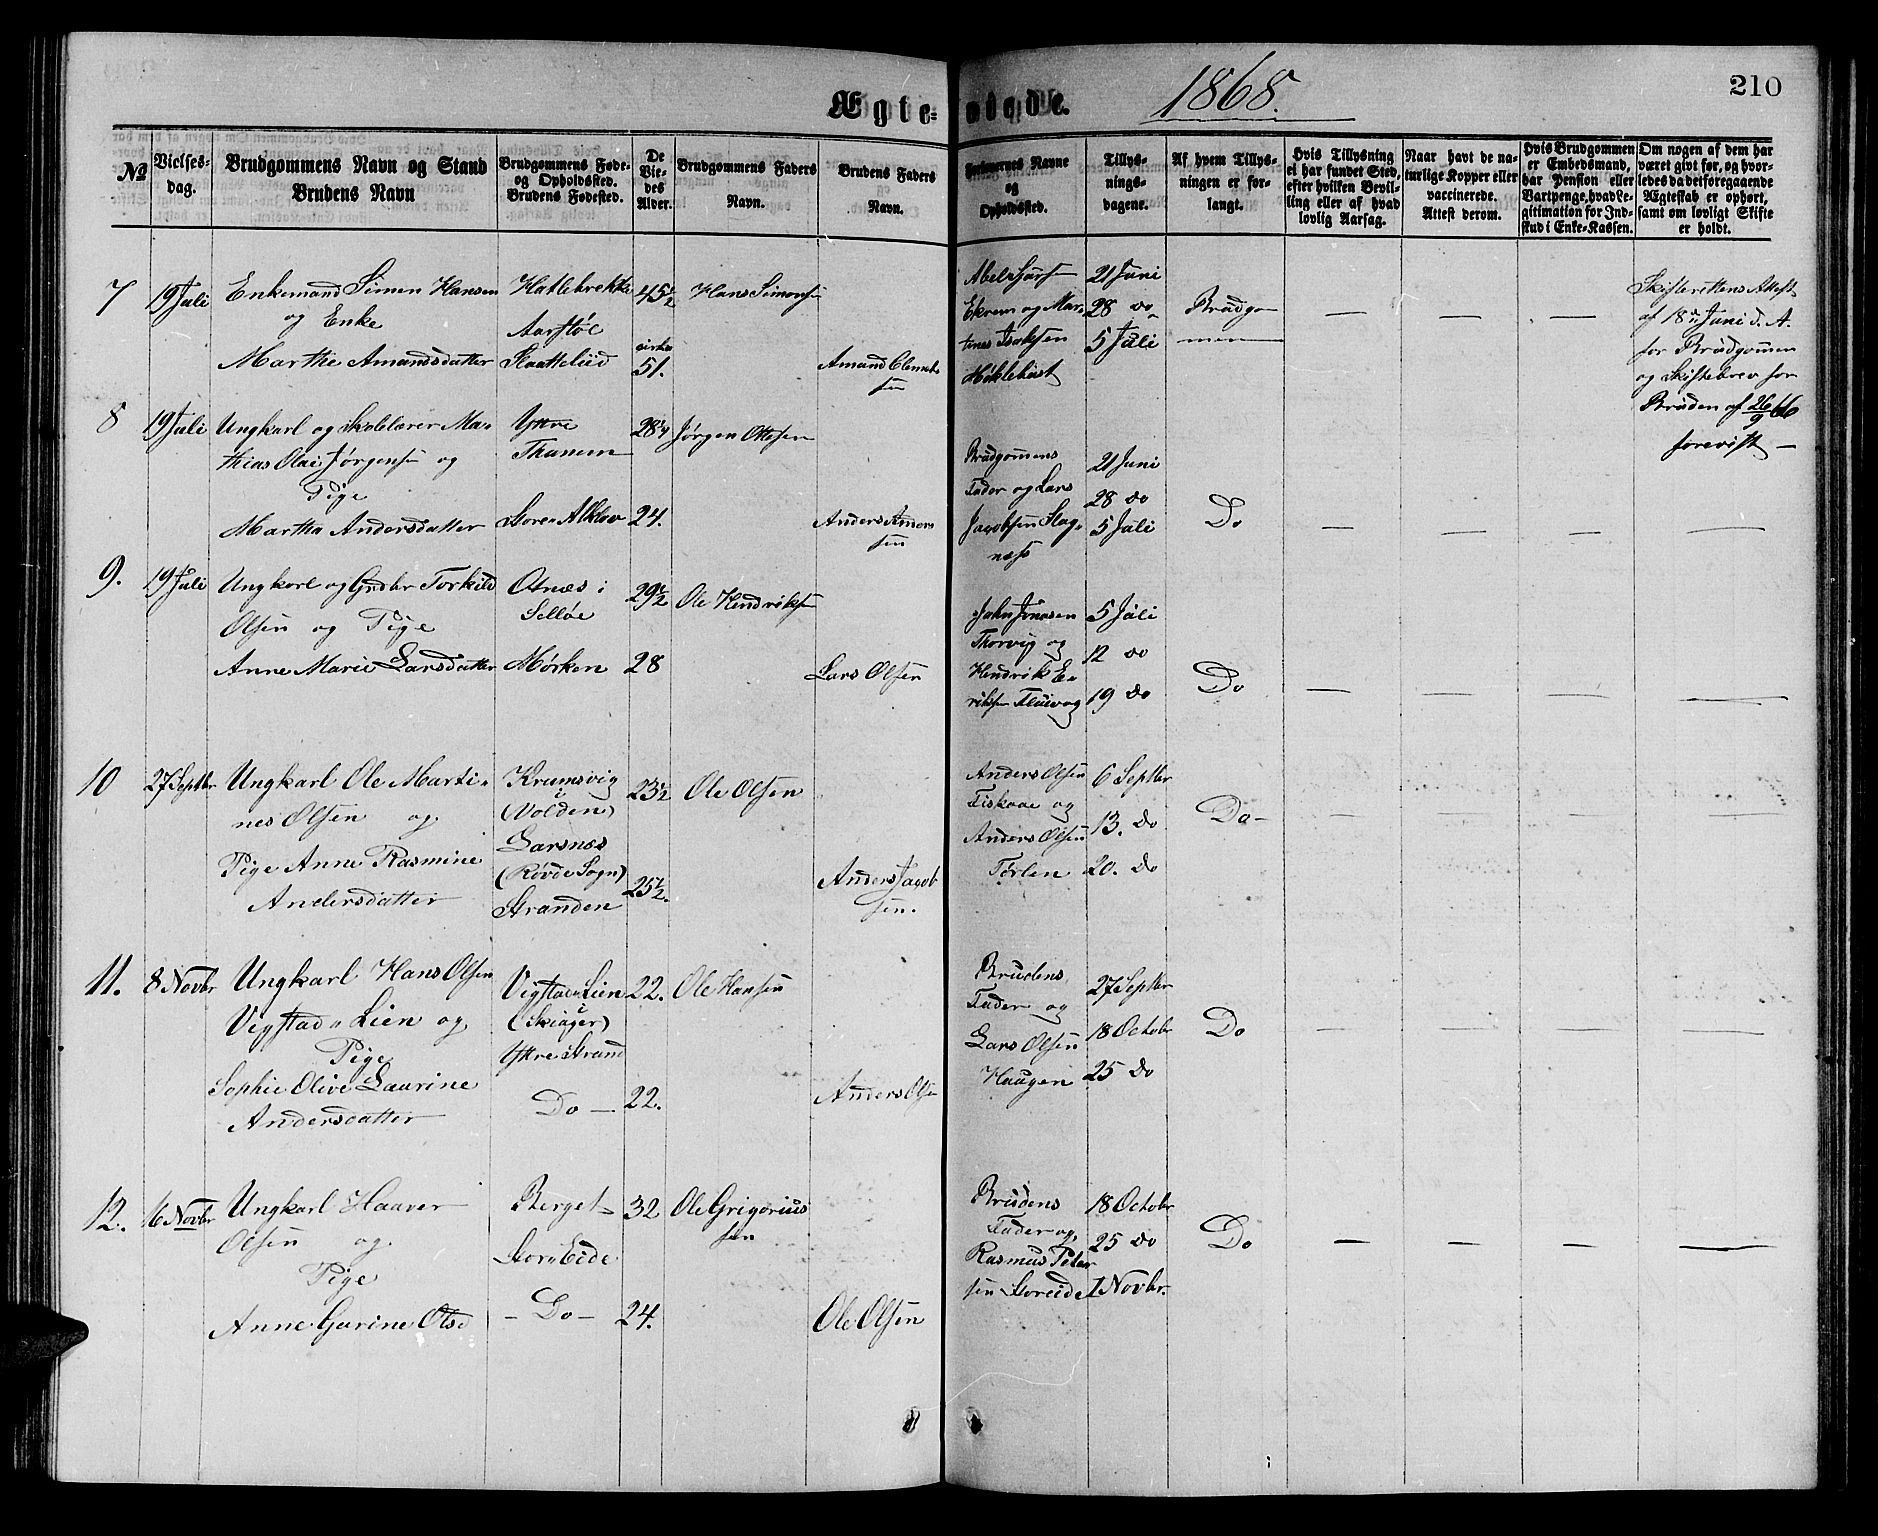 Ægte-viede. 1868. 210
№
Vielses-
dag.
Brudgommens Navn og Stand
Brudens Navn
Brudgommens Føde-
og Opholdssted.
Brudens Fødested.
De
Vie-
des
Alder.
Brudgommens Faders
Navn.
Brudens Faders
Navn.
Forlovernes Navne
og
Opholdssted.
Tillys-
nings-
dagene.
Af hvem Tillys-
ningen er for-
langt.
Hvis Tillysning
ei har fundet Sted,
efter hvilken Bevil-
ling eller af hvad
lovlig Aarsag.
Naar havt de na-
turlige Kopper eller
vaccinerede.
Attest derom.
Hvis Brudgommen
er Embedsmand,
har Pension eller
Vartpenge, hvad Le-
gitimation for Ind-
skud i Enke-Kassen.
Om nogen af dem har
været givt før, og hvor-
ledes da det foregaaende
Ægteskab er ophørt,
samt om lovligt Skifte
er holdt.
7
19 Juli
Enkemand Simen Hansen
og Enke
Marthe Amundsdatter
Hatlebrekke
Aarstöl
Slaattelid
45 1/2
cirka
51.
Hans Simons
Amund
sen
Abel
Ekrem og Mar-
tines Isaksen
21 Juni
28 do
5 Juli
Brudgo-
men
Skifterettens Attest
af 18de Juni d. A.
for Brudgommen
og Skiftebrev for
Bruden af 26/9 66
forevist —
8
19 Juli
Ungkarl og Skolelærer Ma-
thias Olai Jørgensen og
Pige
Martha Andersdatter
Yttre
Thunem
28 1/4
24.
Jørgen Ottesen
Anders
sen
Brudgommens
Fader og Lars
Jacobsen Slag-
næs
21 Juni
28 do
5 Juli
Do
9.
19 Juli
Ungkarl og Grdbr Torkild
Olsen og Pige
Anne Marie Larsdatter
Otnæs i
Selløe
Mørken
29 1/2
28
Ole Hendriksen
Lars Olsen
John Jonasen
Thorvig og
Hendrik E-
riksen
5 Juli
12 do
19 do
Do
10
27 Septbr
Ungkarl Ole Marti-
nes Olsen og
Pige Anne Rasmine
Andersdatter
Krumsvig
i
(Volden)
Larsnæs
(Røvde Sogn)
Stranden
23 1/2
25 1/2.
Ole Olsen
Anders Jacob
sen.
Anders Olsen
Fiskaae og
Anders Olsen
Tørlen
6 Septbr
13. do
20. do
Do —
11.
8 Novbr
Ungkarl Hans Olsen
Vigstad-Lien og
Pige
Sophie Olive Laurine
Andersdatter
Vigstad-Lien
i
(Skiager)
Yttre Strand
Do —
22.
22.
Ole Hansen
Anders Olsen
Brudens
Fader og
Lars Olsen
Haugen
27 Septbr
18 Octobr
25 Do
Do
12.
6 Novbr
Ungkarl Haaver
Olsen og
Pige
Anne Gurine Olsd
Berget-
Stor-Eide
- Do -
32
24.
Ole Grigorius
sen
Ole Olsen
Brudens
Fader og
Rasmus Peter
sen Storeide
18 Octobr
25 Do
1 Novbr.
Do